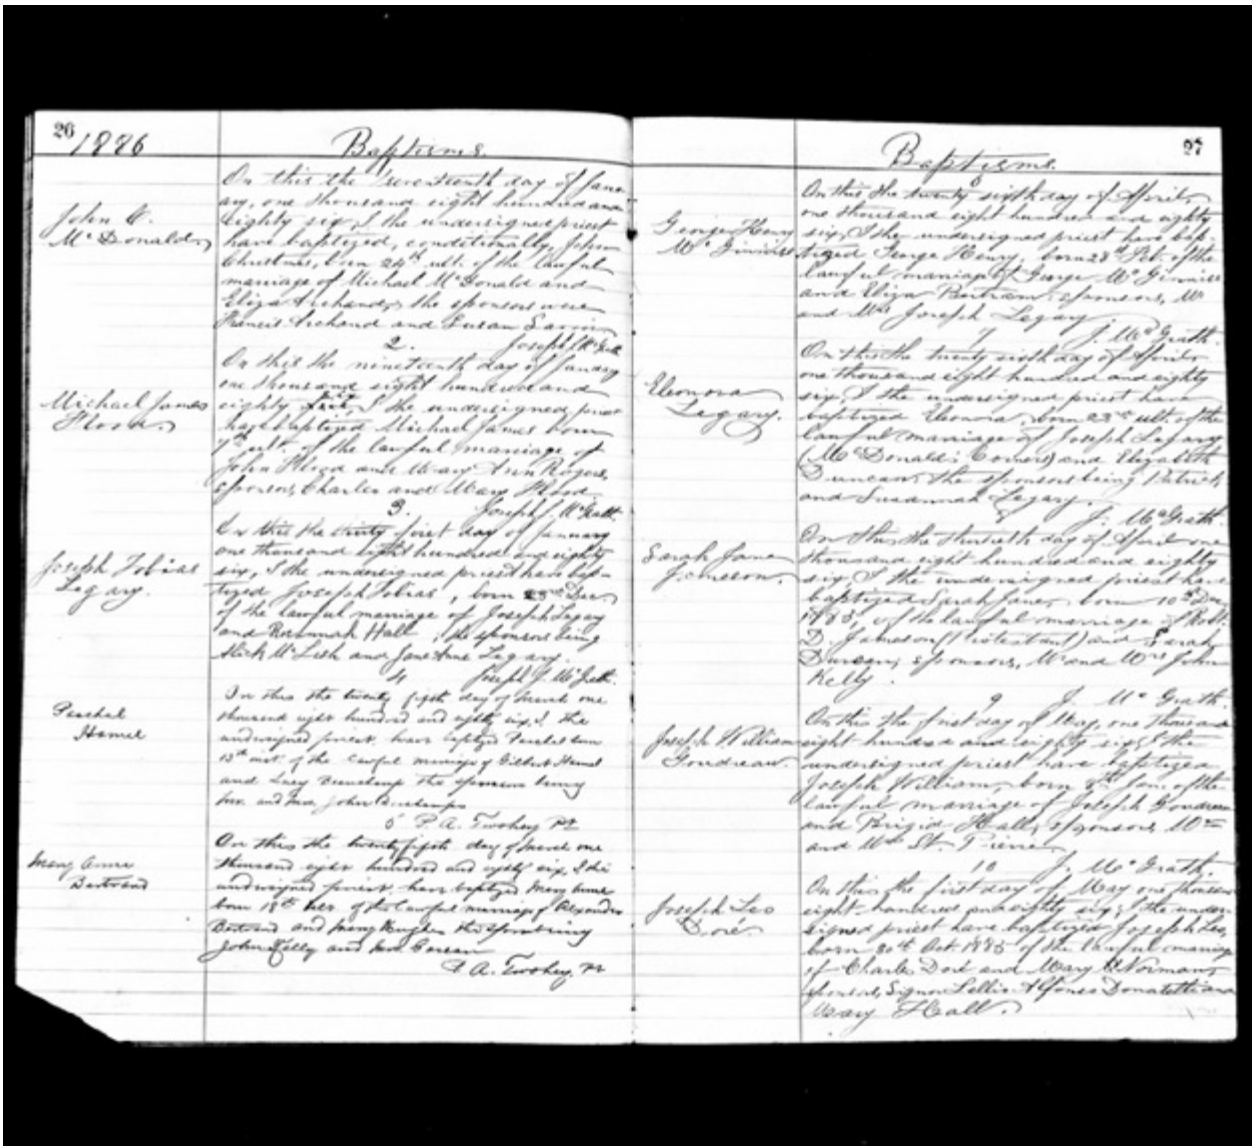 26
1886
Baptisms.
John C.
McDonald
On this the seventeenth day of Janu-
ary, one thousand eight hundred and
eighty six, I the undersigned priest
have baptized, conditionally, John
Christmas, born 24th ult. of the lawful
marriage of Michael McDonald and
Eliza Archand, the sponsors were
Francis Archand and Susan
Joseph J. McGrath
2.
Michael James
Flood.
On this the nineteenth day of January
one thousand eight hundred and
eighty six, I the undersigned priest
have baptized Michael James born
7th ult. of the lawful marriage of
John Flood and Mary Ann Rogers,
sponsors, Charles and Mary Flood.
Joseph J. McGrath.
3.
Joseph Tobias
Legary.
On this the thirty first day of January
one thousand eight hundred and eighty
six, I the undersigned priest have bap-
tized Joseph Tobias, born 23rd Dec.
of the lawful marriage of Joseph Legary
and Hall, the sponsors being
and Jane Anne Legary.
Joseph J. McGrath.
4
Paschal
Hamel
On this the twenty fifth day of March one
thousand eight hundred and eighty six, I the
undersigned priest have baptized Paschal born
13th inst. of the lawful marriage of Gilbert Hamel
and Lucy the sponsors being
Mr. and Mrs. John
P. A. Twohey Pt
5
Mary Anne
Bertrand
On this the twenty fifth day of March one
thousand eight hundred and eighty six, I the
undersigned priest have baptized Mary Anne
born 18th of the lawful marriage of Alexander
Bertrand and Mary Hughes the sponsors being
John Kelly and Mrs
P. A. Twohey Pt
27
Baptisms.
6
George Henry
McGinniss
On this the twenty sixth day of April,
one thousand eight hundred and eighty
six, I the undersigned priest have bap-
tized George Henry, born 28th Feb. of the
lawful marriage of George McGinniss
and Eliza Bertram, sponsors, Mr
and Mrs Joseph Legary.
J. McGrath.
7
Eleonora
Legary.
On this the twenty sixth day of April,
one thousand eight hundred and eighty
six, I the undersigned priest have
baptized Eleonora, born 23rd ult. of the
lawful marriage of Joseph Legary
(McDonald's Corners) and Elizabeth
Duncan, the sponsors being Patrick
and Susannah Legary.
J. McGrath.
8
Sarah Jane
Jameson.
On this the thirtieth day of April one
thousand eight hundred and eighty
six, I the undersigned priest have
baptized Sarah Jane, born 10th Dec.
1885, of the lawful marriage of Robt.
D. Jameson (Protestant) and Sarah
Duncan, sponsors, Mr and Mrs John
Kelly.
J. McGrath.
9
Joseph William
Goudreau.
On this the first day of May, one thousand
eight hundred and eighty six, I the
undersigned priest have baptized
Joseph William, born 8th Jan. of the
lawful marriage of Joseph Goudreau
and Brigid Hall, sponsors, Mr
and Mrs St. Pierre
J. McGrath.
10
Joseph Leo
Doré.
On this the first day of May one thousand
eight hundred and eighty six, I the under-
signed priest have baptized Joseph Leo,
born 30th Oct. 1885 of the lawful marriage
of Charles Doré and Mary Norman,
sponsors, Signor Alfonso Donatetti and
Mary Hall.